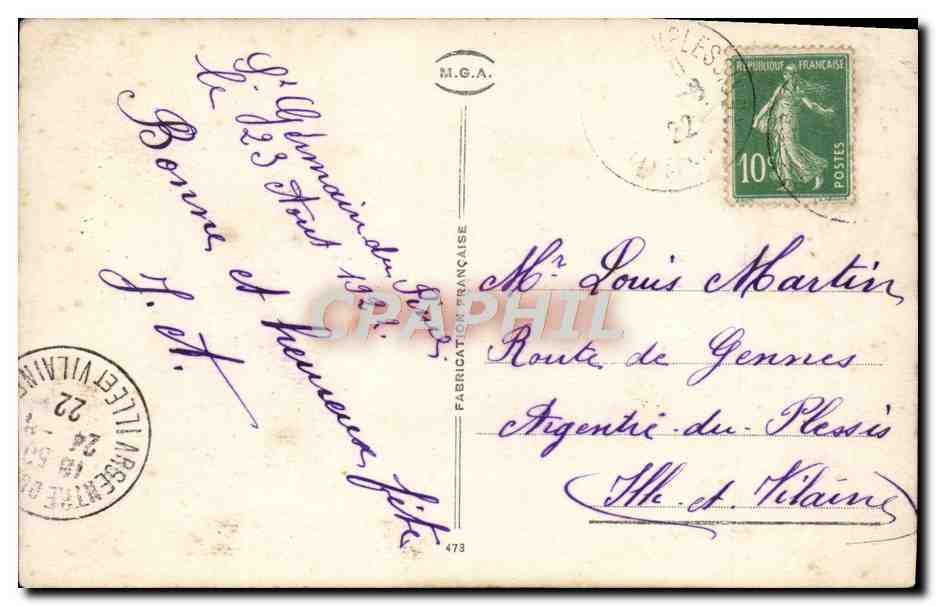 St Germain du Pinel
le 23 Aout 1922.
Bonne et heureuse fête
J. A.
M.G.A.
FABRICATION FRANÇAISE
473
RÉPUBLIQUE FRANÇAISE
10c
POSTES
22
Mr Louis Martin
Route de Gennes
Argentré-du-Plessis
(Ille-et-Vilaine)
ARGENTRE DU
ILLE ET VILAINE
15 50
24
22
CPAPHIL